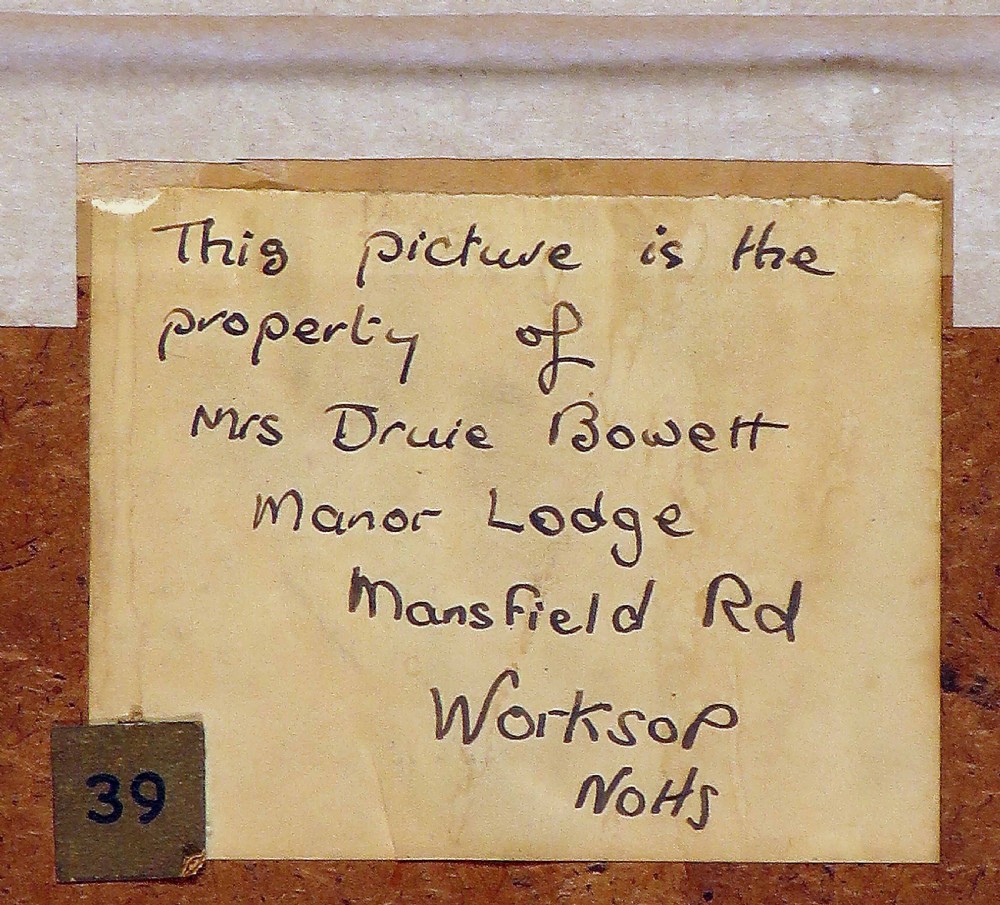 This picture is the
property of
Mrs Druie Bowett
Manor Lodge
Mansfield Rd
Worksop
Notts
39